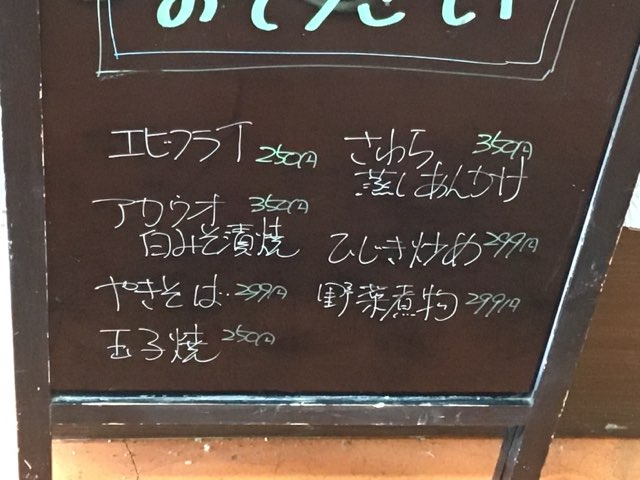 エビフライ 250円
アカウオ 350円
白みそ漬焼
やきそば 299円
玉子焼 250円
さわら 350円
蒸しあんかけ
ひじき炒め 299円
野菜煮物 299円